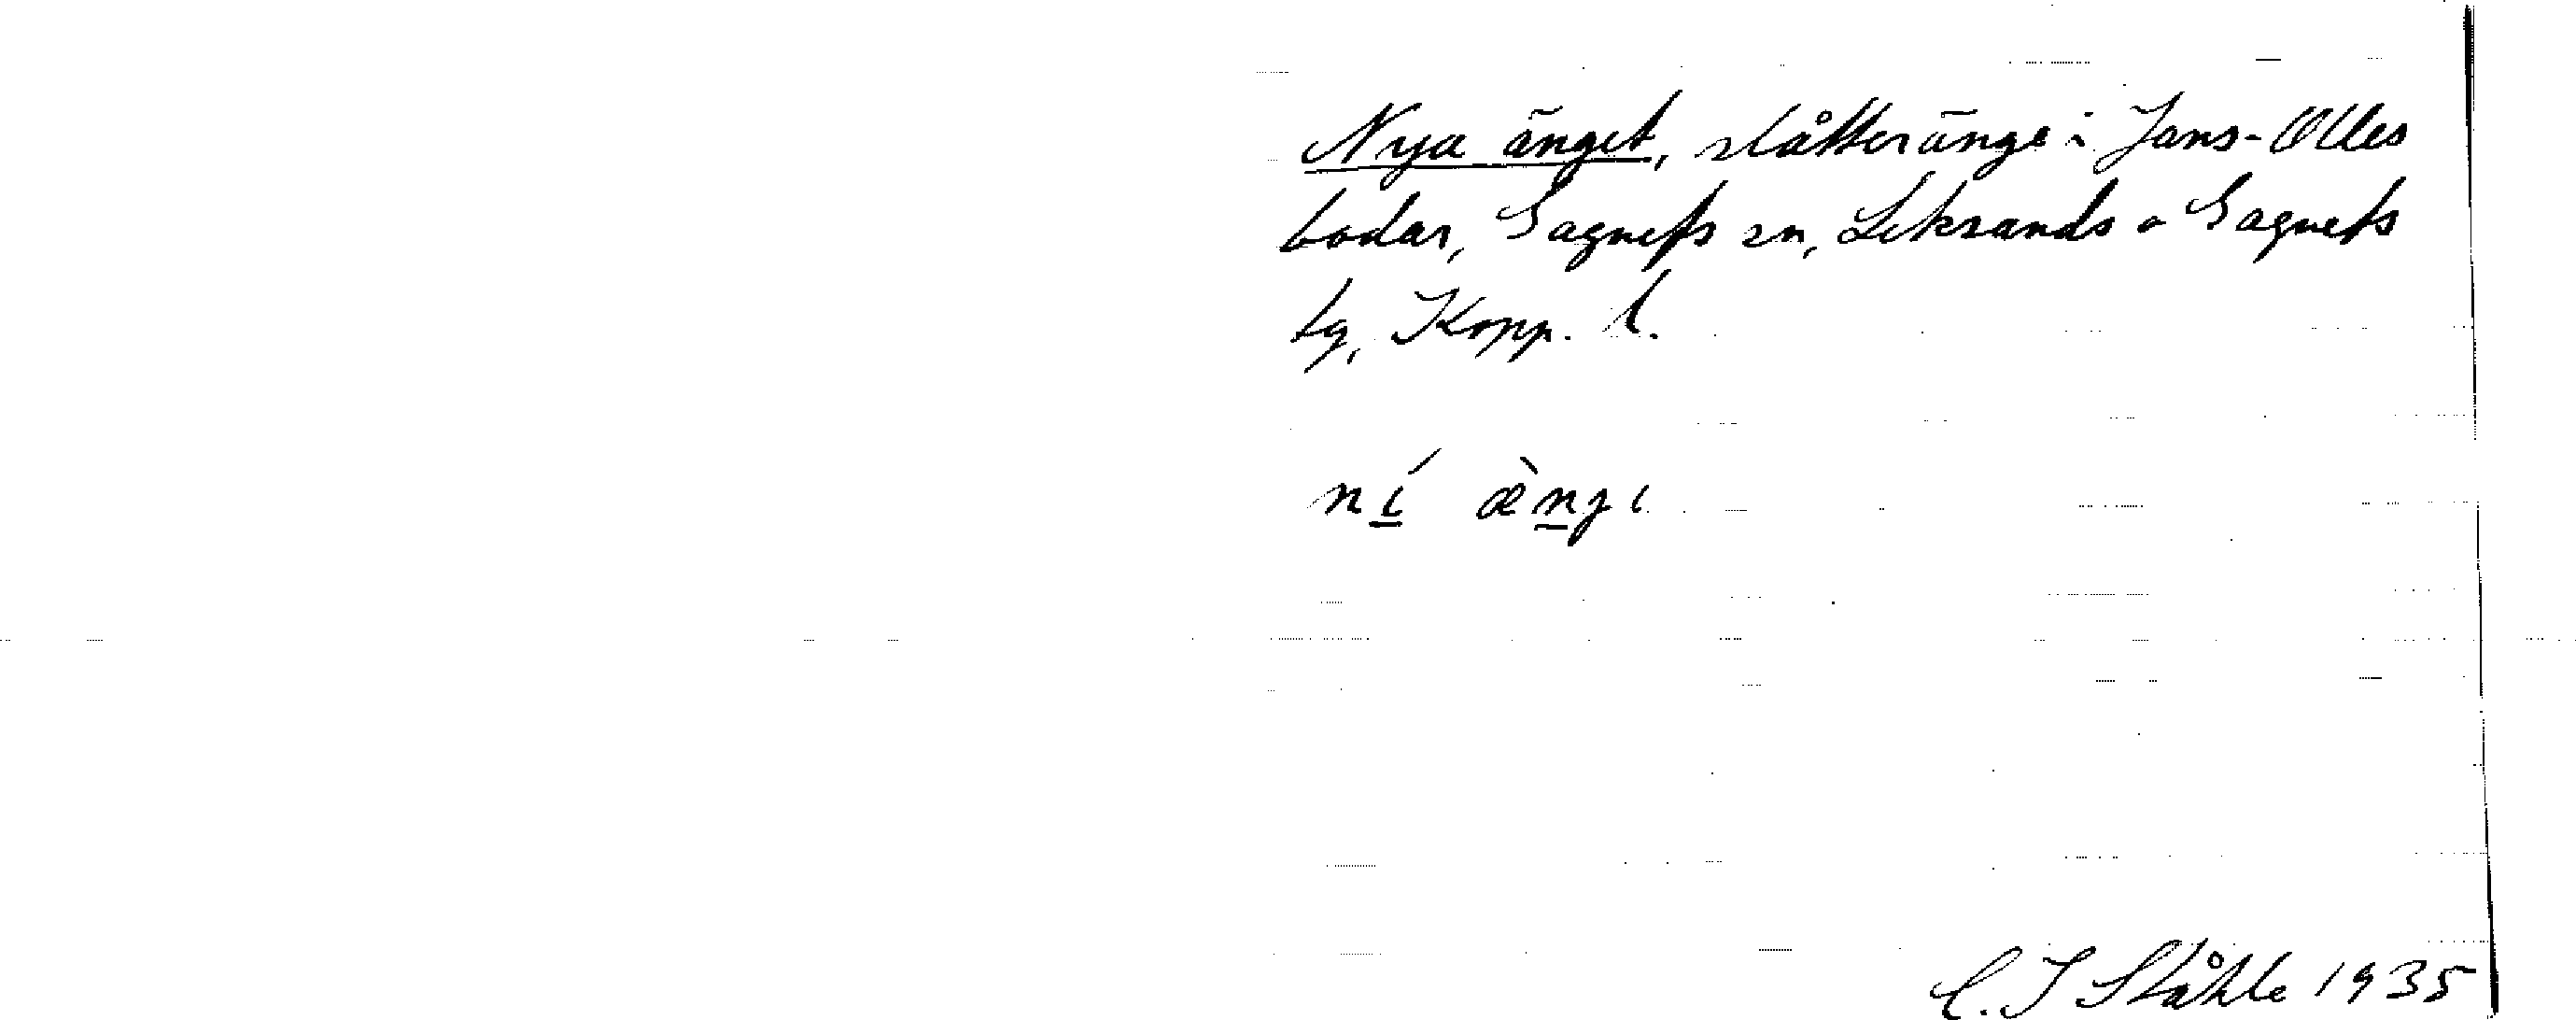 Nya änget, slåtteränge i Jans-Olles
bodar, Gagnefs sn, Leksands o Gagnefs
tg, Kopp. l.
ní æ̀nʒı
C. I Ståhle 1935